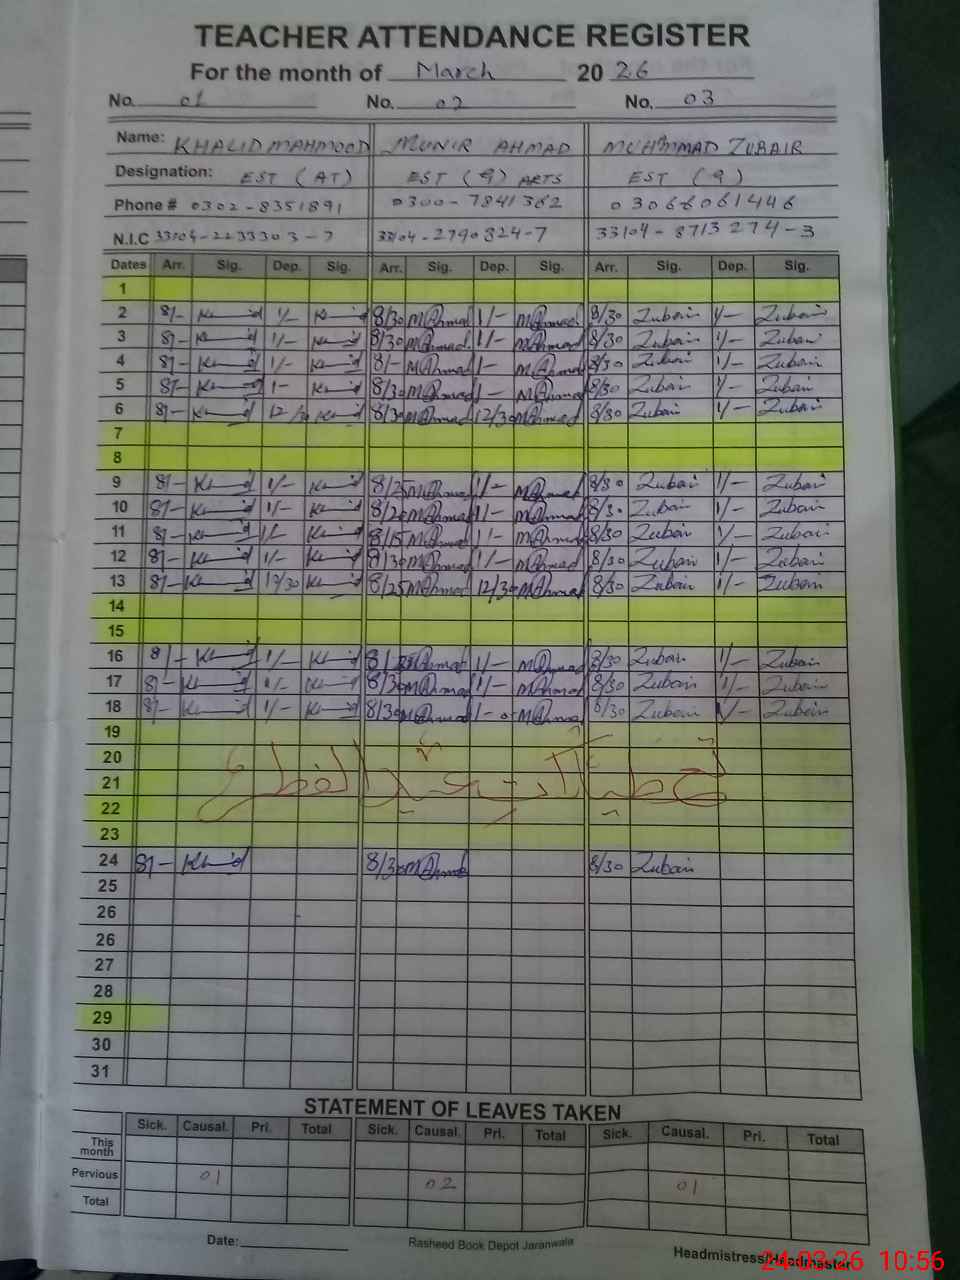 TEACHER ATTENDANCE REGISTER
For the month of March 2026
No. 01 No. 02 No. 03
Name: KHALID MAHMOOD MUNIR AHMAD MUHAMMAD ZUBAIR
Designation: EST (AT) EST (9) ARTS EST (9)
Phone # 0302-8351891 0300-7841362 03066061446
N.I.C 33104-2233303-7 33104-2790824-7 33104-8713274-3
Dates Arr. Sig. Dep. Sig. Arr. Sig. Dep. Sig. Arr. Sig. Dep. Sig.
1
2 8/- 1/- 8/30 MAhmad 1/- MAhmad 8/30 Zubair 1/- Zubair
3 8/- 1/- 8/30 MAhmad 1/- MAhmad 8/30 Zubair 1/- Zubair
4 8/- 1/- 8/- MAhmad 1- MAhmad 8/30 Zubair 1/- Zubair
5 8/- 1- 8/30 MAhmad 1- MAhmad 8/30 Zubair 1/- Zubair
6 8/- 12/30 8/30 MAhmad 12/30 MAhmad 8/30 Zubair 1/- Zubair
7
8
9 8/- 1/- 8/25 MAhmad 1/- MAhmad 8/30 Zubair 1/- Zubair
10 8/- 1/- 8/20 MAhmad 1/- MAhmad 8/30 Zubair 1/- Zubair
11 8/- 1/- 8/15 MAhmad 1- MAhmad 8/30 Zubair 1/- Zubair
12 8/- 1/- 8/30 MAhmad 1/- MAhmad 8/30 Zubair 1/- Zubair
13 8/- 12/30 8/25 MAhmad 12/30 MAhmad 8/30 Zubair 1/- Zubair
14
15
16 8/- 1/- 8/25 MAhmad 1/- MAhmad 8/30 Zubair 1/- Zubair
17 8/- 1/- 8/30 MAhmad 1/- MAhmad 8/30 Zubair 1/- Zubair
18 8/- 1/- 8/30 MAhmad 1- MAhmad 8/30 Zubair 1/- Zubair
19
20
21 تعطیلات عید الفطر
22
23
24 8/- 8/30 MAhmad 8/30 Zubair
25
26
26
27
28
29
30
31
STATEMENT OF LEAVES TAKEN
Sick. Causal. Pri. Total Sick. Causal. Pri. Total Sick. Causal. Pri. Total
This month
Pervious 01 02 01
Total
Date:
Rasheed Book Depot Jaranwala
Headmistress/Headmaster
24-03-26 10:56